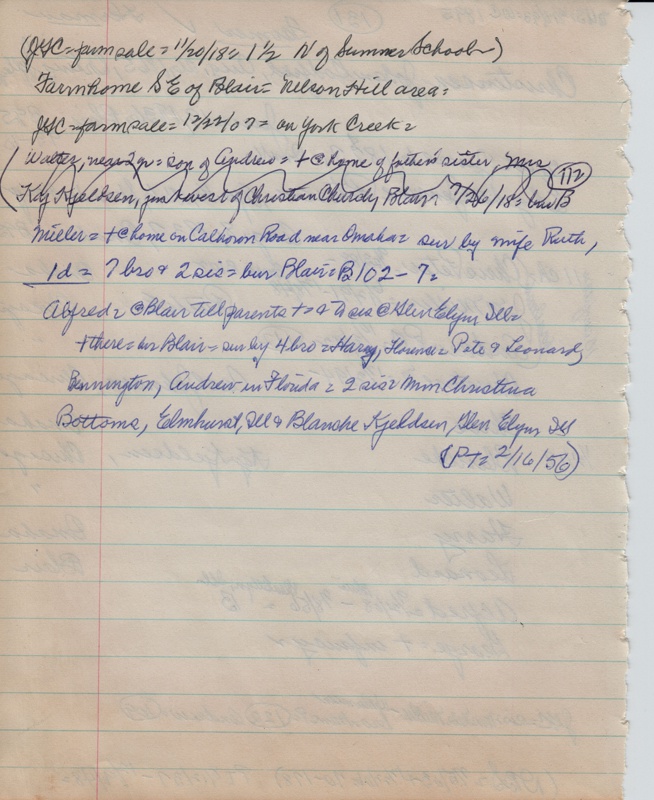 (JSC = farm sale = 11/20/18 = 1 1/2 N of Summer School)
Farm home SE of Blair = Nelson Hill area =
JSC = farm sale = 12/22/07 = on York Creek =
(Walter, near 2 = son of Andrew = + @ home of father's sister, Mrs
Kaj Kjeldsen, just west of Christian Church, Blair 7/26/18 = bur B (112)
Miller = + @ home on Calhoun Road near Omaha = sur by wife Ruth,
1 d = 7 bro & 2 sis = bur Blair = B102-7 =
Alfred = @ Blair till parents + = sis @ Glen Elyn Ill =
+ there = bur Blair = sur by 4 bro = Harry, Florence = Pete & Leonard,
Bennington, Andrew in Florida = 2 sis = Mrs Christina
Bottoms, Elmhurst, Ill & Blanche Kjeldsen, Glen Elyn Ill
(PT = 2/16/56)